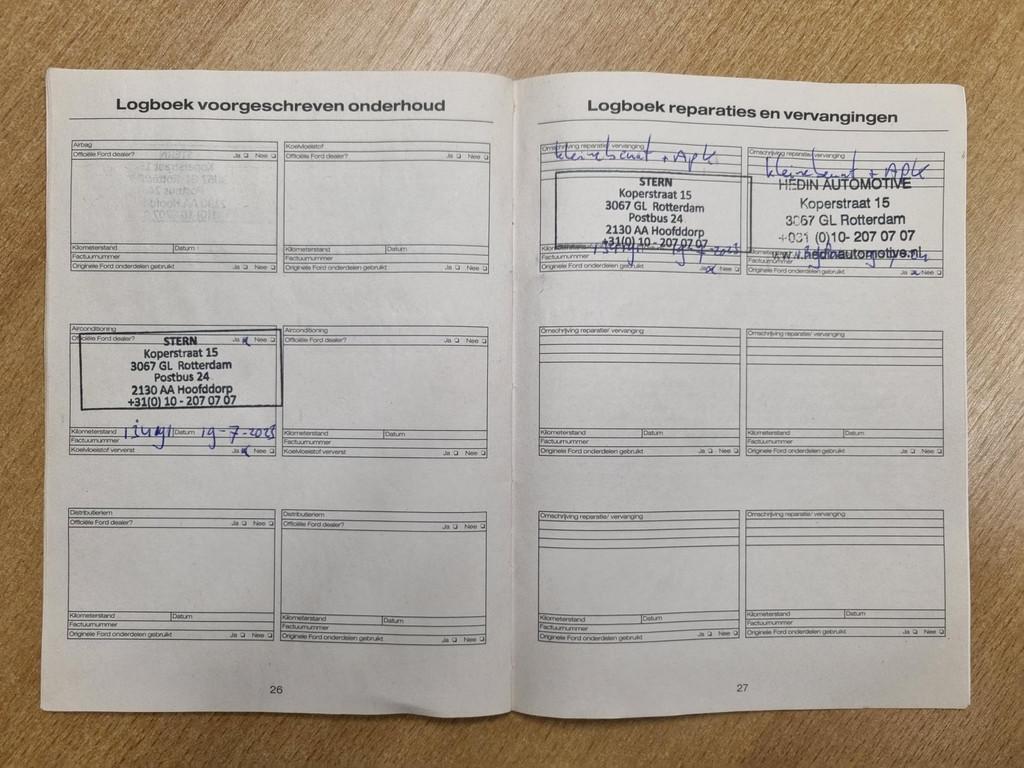 Logboek voorgeschreven onderhoud
Airbag
Officiële Ford dealer? Ja Nee
Kilometerstand Datum
Factuurnummer
Originele Ford onderdelen gebruikt Ja Nee
Koelvloeistof
Officiële Ford dealer? Ja Nee
Kilometerstand Datum
Factuurnummer
Originele Ford onderdelen gebruikt Ja Nee
Airconditioning
Officiële Ford dealer? Ja Nee
STERN
Koperstraat 15
3067 GL Rotterdam
Postbus 24
2130 AA Hoofddorp
+31(0) 10 - 207 07 07
Kilometerstand Datum 19-7-2023
Factuurnummer
Koelvloeistof ververst Ja Nee
Airconditioning
Officiële Ford dealer? Ja Nee
Kilometerstand Datum
Factuurnummer
Koelvloeistof ververst Ja Nee
Distributieriem
Officiële Ford dealer? Ja Nee
Kilometerstand Datum
Factuurnummer
Originele Ford onderdelen gebruikt Ja Nee
Distributieriem
Officiële Ford dealer? Ja Nee
Kilometerstand Datum
Factuurnummer
Originele Ford onderdelen gebruikt Ja Nee
26
Logboek reparaties en vervangingen
Omschrijving reparatie/ vervanging
kleinebeurt + APK
STERN
Koperstraat 15
3067 GL Rotterdam
Postbus 24
2130 AA Hoofddorp
+31(0) 10 - 207 07 07
19-7-2023
Factuurnummer
Originele Ford onderdelen gebruikt Ja Nee
Omschrijving reparatie/ vervanging
kleinebeurt + APK
HEDIN AUTOMOTIVE
Koperstraat 15
3067 GL Rotterdam
+031 (0)10- 207 07 07
www.hedinautomotive.nl
Factuurnummer
Originele Ford onderdelen gebruikt Ja Nee
Omschrijving reparatie/ vervanging
Kilometerstand Datum
Factuurnummer
Originele Ford onderdelen gebruikt Ja Nee
Omschrijving reparatie/ vervanging
Kilometerstand Datum
Factuurnummer
Originele Ford onderdelen gebruikt Ja Nee
Omschrijving reparatie/ vervanging
Kilometerstand Datum
Factuurnummer
Originele Ford onderdelen gebruikt Ja Nee
Omschrijving reparatie/ vervanging
Kilometerstand Datum
Factuurnummer
Originele Ford onderdelen gebruikt Ja Nee
27